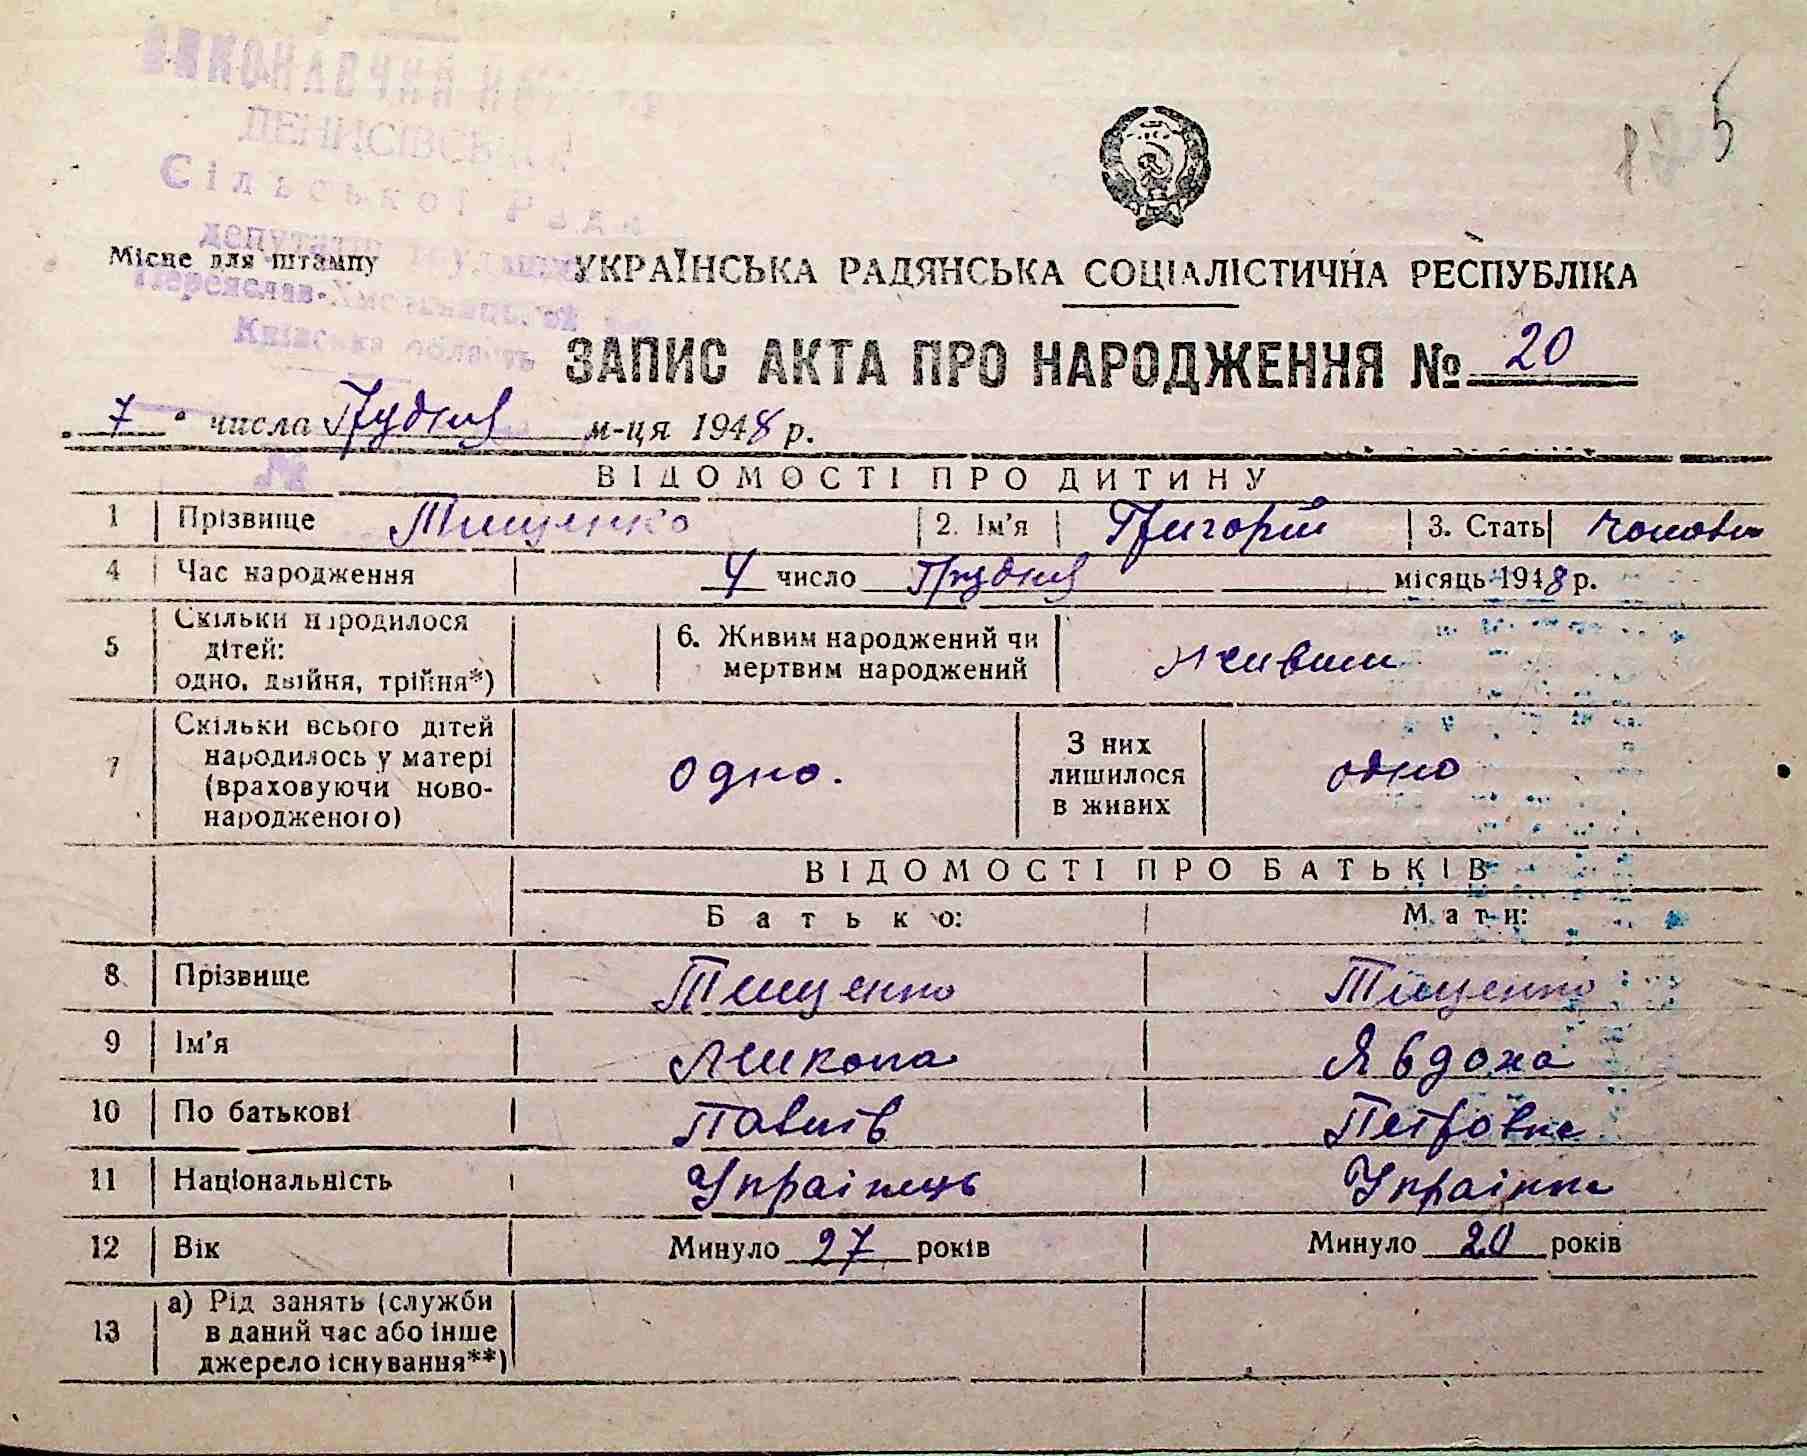 ВИКОНАВЧИЙ
ДЕНИСІВСЬКОЇ
Сільської Ради
депутатів трудящих
Місце для штампу
Переяслав-Хмельницьк.
Київська область
5
УКРАЇНСЬКА РАДЯНСЬКА СОЦІАЛІСТИЧНА РЕСПУБЛІКА
ЗАПИС АКТА ПРО НАРОДЖЕННЯ № 20
7 числа Грудня м-ця 1948 р.
ВІДОМОСТІ ПРО ДИТИНУ
1 Прізвище Тищенко 2. Ім'я Григорій 3. Стать чолов
4 Час народження 4 число Грудня місяць 1948 р.
5 Скільки народилося
дітей:
одно, двійня, трійня*)
6. Живим народжений чи
мертвим народжений
живим
7 Скільки всього дітей
народилось у матері
(враховуючи ново-
народженого)
одно.
З них
лишилося
в живих
одно
ВІДОМОСТІ ПРО БАТЬКІВ
Батько: Мати:
8 Прізвище Тищенко Тищенко
9 Ім'я Микола Явдоха
10 По батькові Павлів Петровна
11 Національність Українець Українка
12 Вік Минуло 27 років Минуло 20 років
13 а) Рід занять (служби
в даний час або інше
джерело існування**)